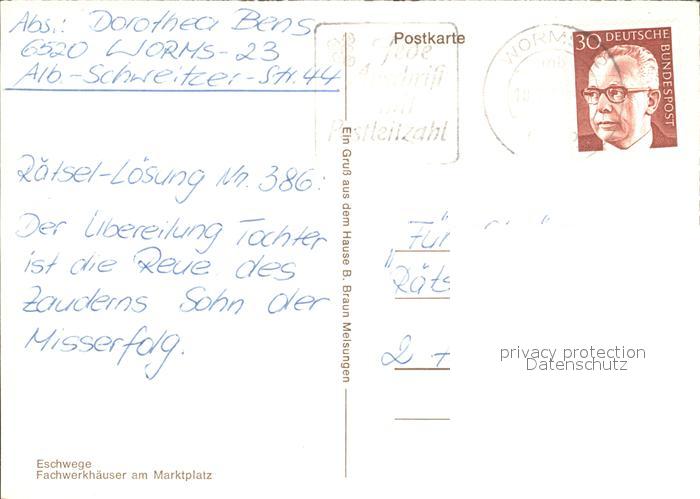 Abs.: Dorothea Bens
6520 WORMS-23
Alb.-Schweitzer-Str. 44
Postkarte
Jede
Anschrift
mit
Postleitzahl
WORMS
30 DEUTSCHE
BUNDESPOST
Rätsel-Lösung Nr. 386:
Der Übereilung Tochter
ist die Reue des
Zauderns Sohn der
Misserfolg.
Ein Gruß aus dem Hause B. Braun Melsungen
"Für
Räts
2
privacy protection
Datenschutz
Eschwege
Fachwerkhäuser am Marktplatz